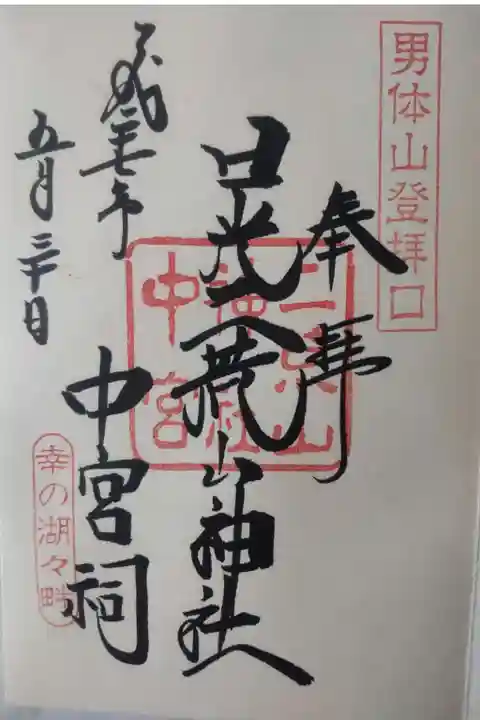 男体山登拝口
奉拝
日光二荒山神社
中宮祠
二荒山
神社
中宮
平成二十七年
五月三十日
幸の湖々畔